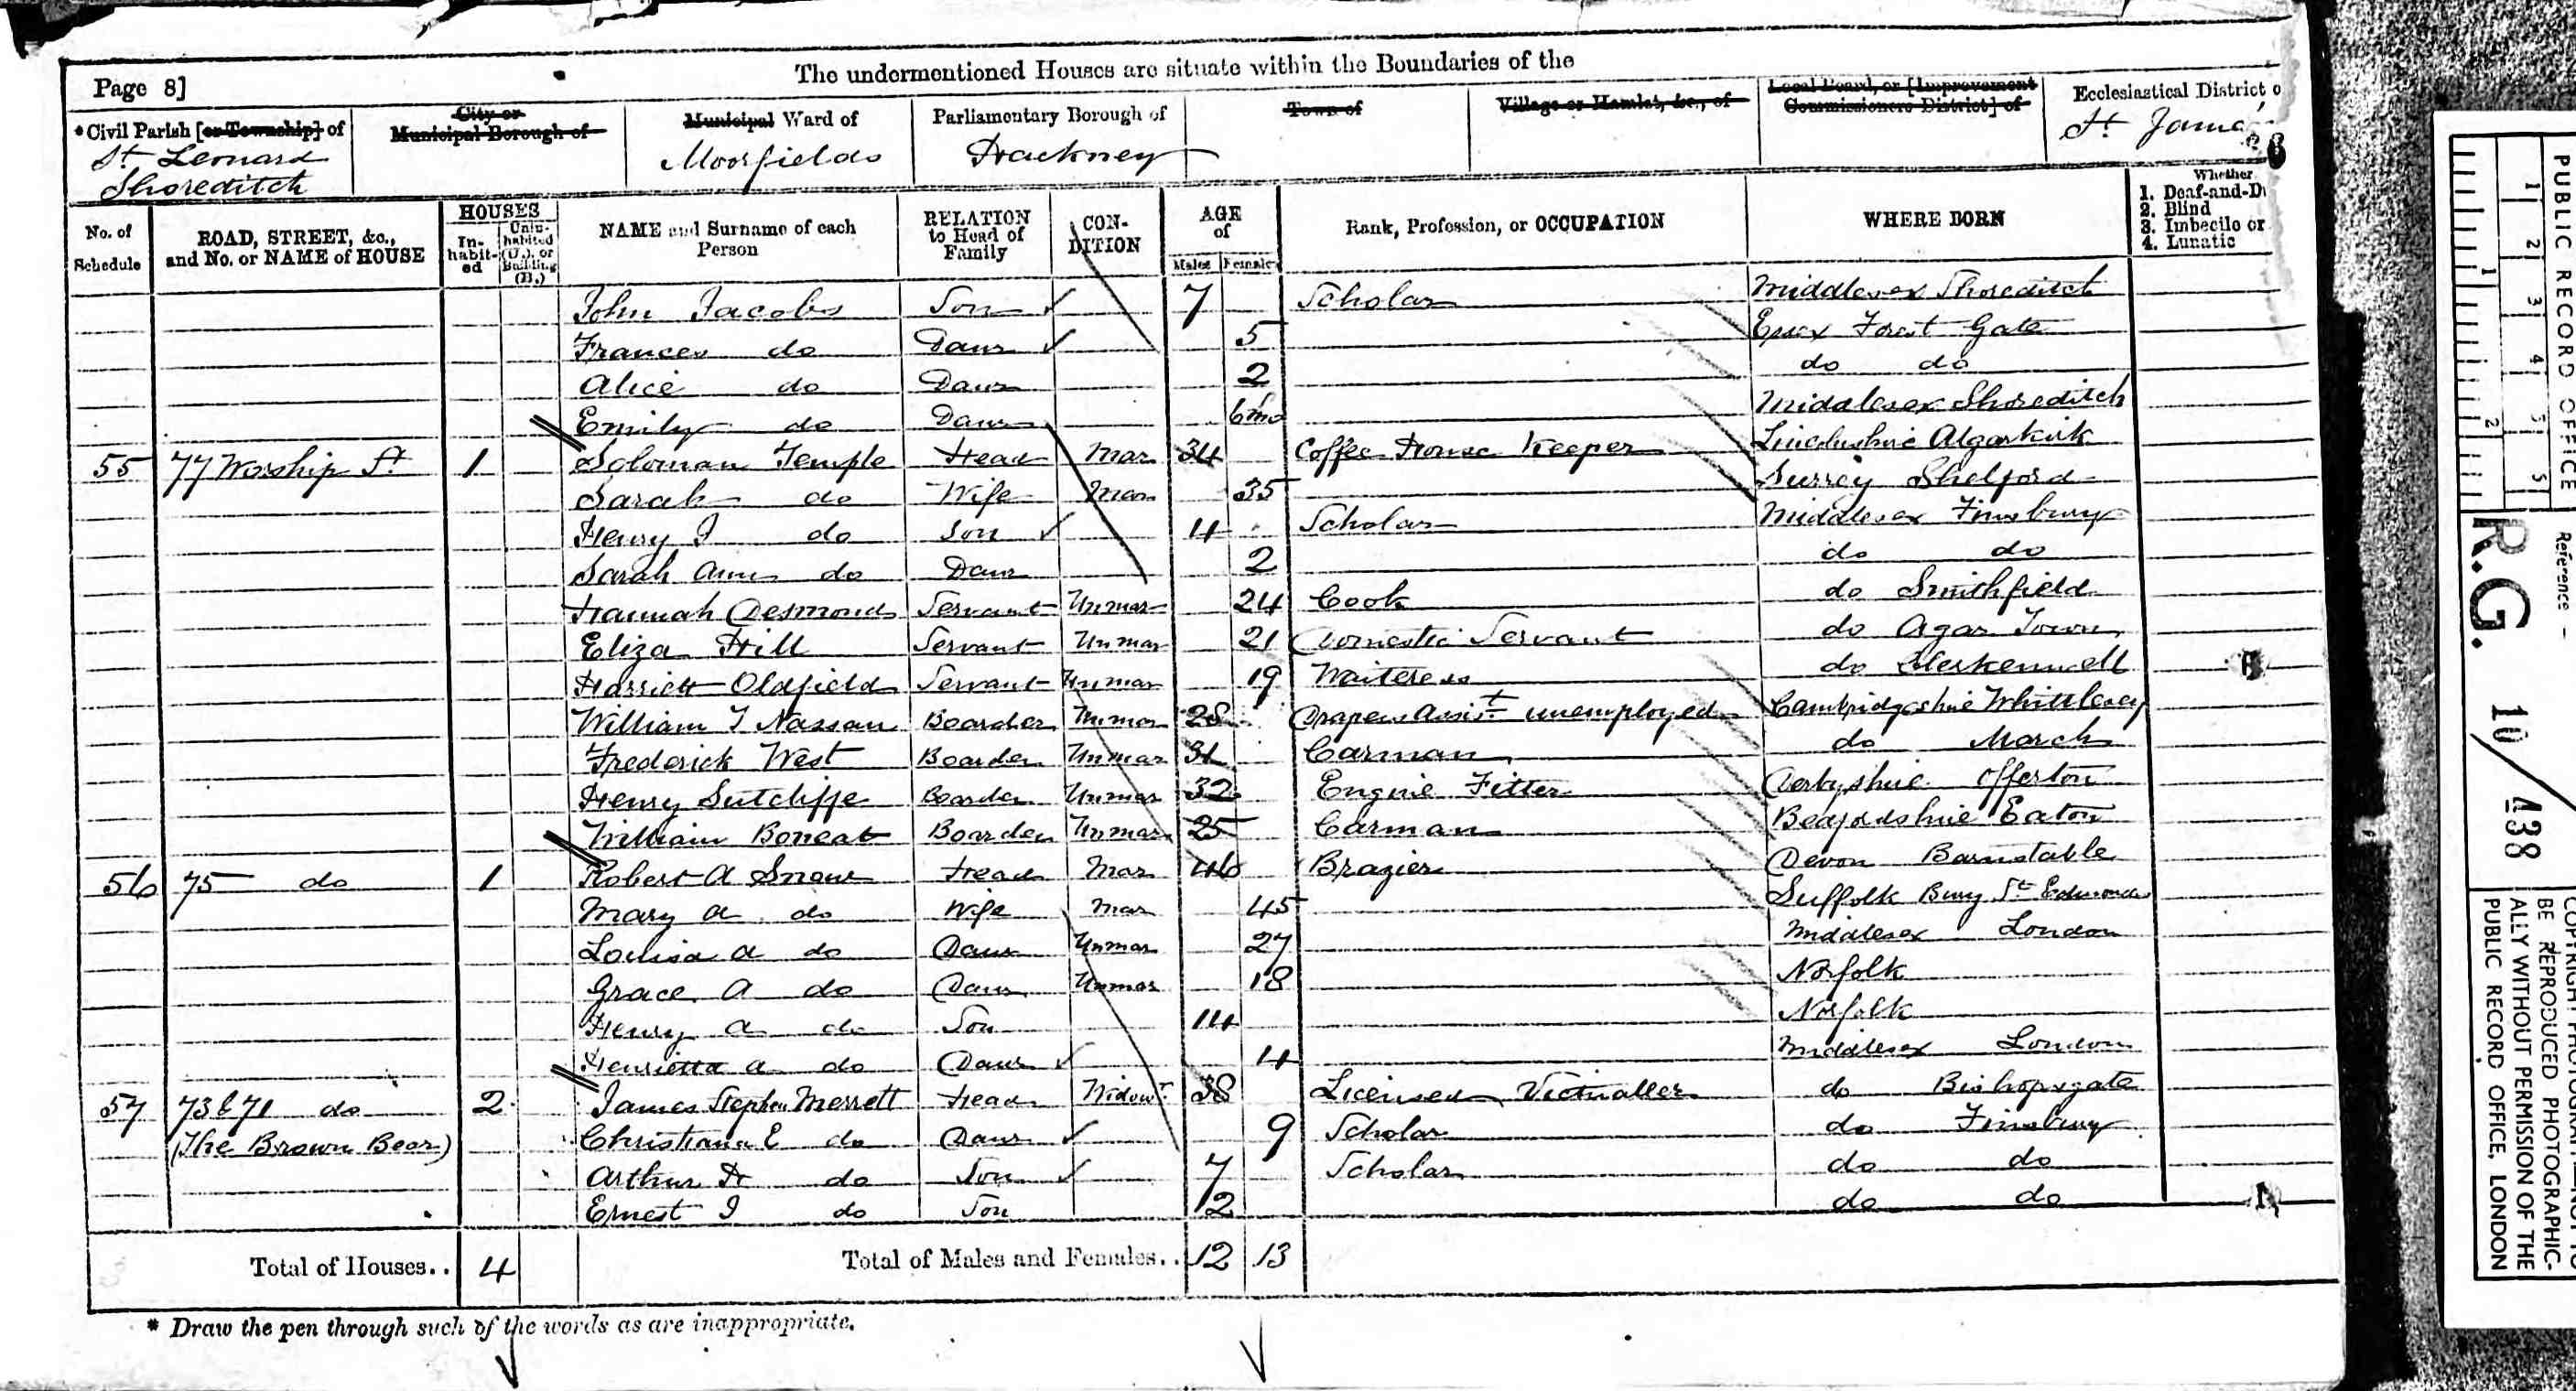 The undermentioned Houses are situate within the Boundaries of the
Page 8]
*Civil Parish [or Township] of
St Leonard
Shoreditch
City or
Municipal Borough of
Municipal Ward of
Moorfields
Parliamentary Borough of
Hackney
Town of
Village or Hamlet, &c., of
Local Board, or [Improvement
Commissioners District] of
Ecclesiastical District o
St James
No. of
Schedule
ROAD, STREET, &c.,
and No. or NAME of HOUSE
HOUSES
In-
habit-
ed
Unin-
habited
(U.), or
Building
(B.)
NAME and Surname of each
Person
RELATION
to Head of
Family
CON-
DITION
AGE
of
Males Females
Rank, Profession, or OCCUPATION
WHERE BORN
Whether
1. Deaf-and-D
2. Blind
3. Imbecile or
4. Lunatic
John Jacobs Son 7 Scholar Middlesex Shoreditch
Frances do Daur 5 Essex Forest Gate
Alice do Daur 2 do do
Emily do Daur 6mo Middlesex Shoreditch
55 77 Worship St 1 Soloman Temple Head Mar 34 Coffee House Keeper Lincolnshire Algarkirk
Sarah do Wife Mar 35 Surrey Shelford
Henry J do Son 4 Scholar Middlesex Finsbury
Sarah Ann do Daur 2 do do
Hannah Desmond Servant Unmar 24 Cook do Smithfield
Eliza Hill Servant Unmar 21 Domestic Servant do Agar Town
Harriett Oldfield Servant Unmar 19 Waiteress do Clerkenwell
William T Nassau Boarder Unmar 28 Drapers Assist unemployed Cambridgeshire Whittlesey
Frederick West Boarder Unmar 31 Carman do March
Henry Sutcliffe Boarder Unmar 32 Engine Fitter Derbyshire Offerton
William Boneat Boarder Unmar 25 Carman Bedfordshire Eaton
56 75 do 1 Robert A Snow Head Mar 46 Brazier Devon Barnstable
Mary A do Wife Mar 45 Suffolk Bury St Edmonds
Louisa A do Daur Unmar 27 Middlesex London
Grace A do Daur Unmar 18 Norfolk
Henry A do Son 14 Norfolk
Henrietta A do Daur 4 Middlesex London
57 73 & 71 do 2 James Stephen Merrett Head Widowr 38 Licensed Victualler do Bishopsgate
(The Brown Bear) Christiana E do Daur 9 Scholar do Finsbury
Arthur H do Son 7 Scholar do do
Ernest J do Son 2 do do
Total of Houses.. 4 Total of Males and Females.. 12 13
* Draw the pen through such of the words as are inappropriate.
PUBLIC RECORD OFFICE
1 2 3 4 5
1 2
Reference -
R.G. 10/438
COPYRIGHT PHOTOGRAPH-NOT TO
BE REPRODUCED PHOTOGRAPHIC-
ALLY WITHOUT PERMISSION OF THE
PUBLIC RECORD OFFICE, LONDON